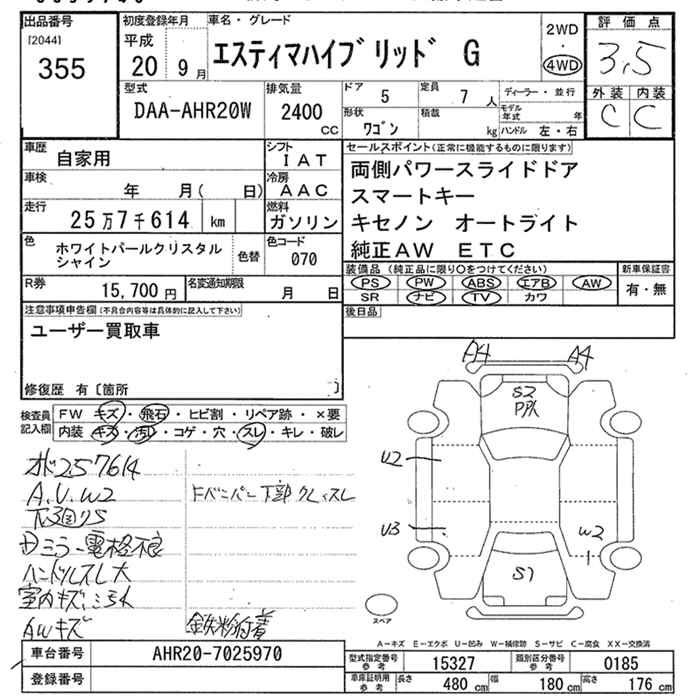 出品番号
[2044]
355
初度登録年月
平成
20 9月
車名・グレード
エスティマハイブリッド G
2WD
・
4WD
評価点
3.5
外装 内装
C C
型式
DAA-AHR20W
排気量
2400
cc
ドア 5
定員 7人
形状 ワゴン
積載 kg
ディーラー・並行
モデル年式 年
ハンドル 左・右
車歴
自家用
シフト
IAT
車検
年 月( 日)
冷房
AAC
走行
25万7千614 km
燃料
ガソリン
色
ホワイトパールクリスタル
シャイン
色替
色コード
070
R券
15,700円
名変通知期限
月 日
セールスポイント(正常に機能するものに限ります)
両側パワースライドドア
スマートキー
キセノン オートライト
純正AW ETC
装備品(純正品に限り○をつけてください)
PS PW ABS エアB AW
SR ナビ TV カワ
新車保証書
有・無
後日品
注意事項申告欄(不具合内容等は具体的に記入して下さい)
ユーザー買取車
修復歴 有〔箇所 〕
検査員記入欄
FW キズ・飛石・ヒビ割・リペア跡・×要
内装 キズ・汚れ・コゲ・穴・スレ・キレ・破レ
257614
A.U.W2
下廻りS
ミラー電格不良
ハンドルスレ大
室内キズ
AWキズ
Fバンパー下部
鉄粉付着
A4 A4
S2
U2
U3
W2
S1
スペア
A-キズ E-エクボ U-凹み W-補修跡 S-サビ C-腐食 XX-交換済
車台番号
AHR20-7025970
登録番号
型式指定番号 参考
15327
類別区分番号 参考
0185
車庫証明用 参考
長さ 480cm
幅 180cm
高さ 176cm